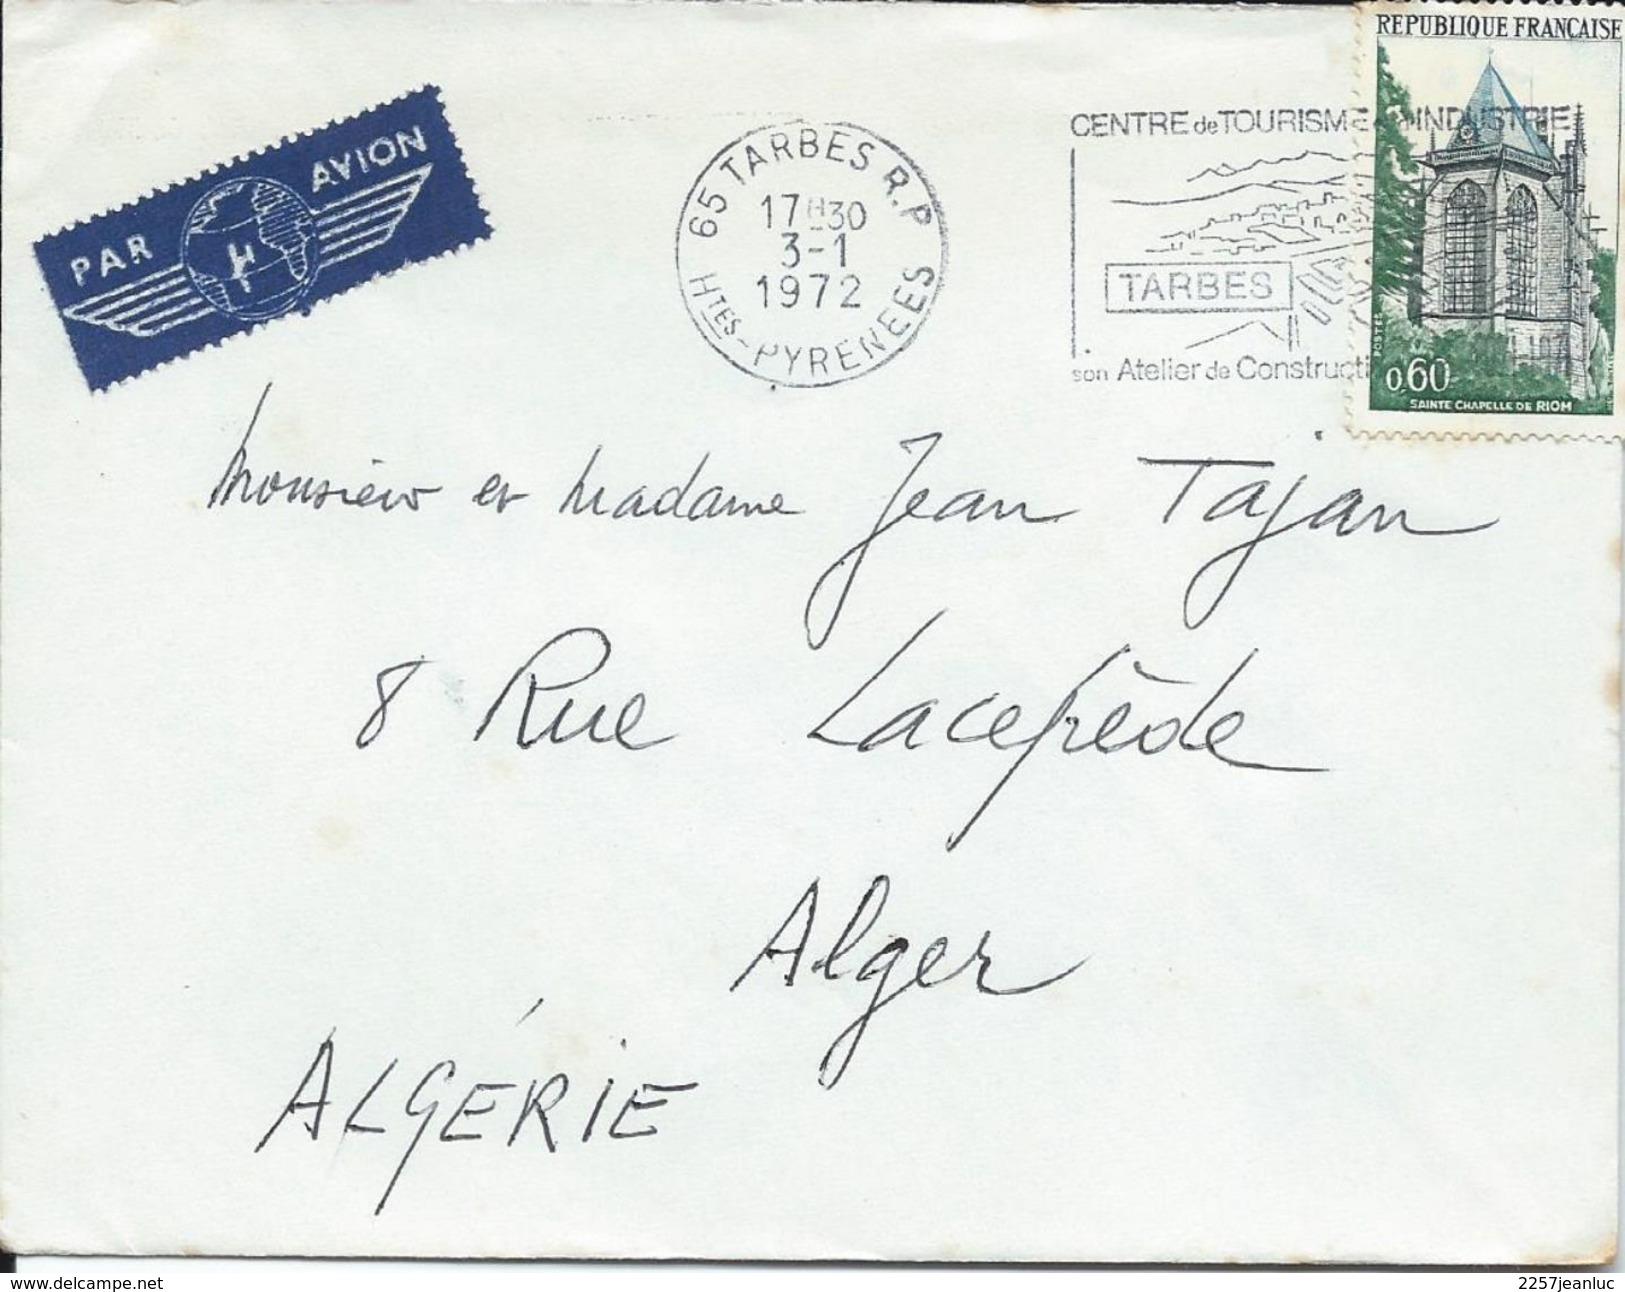 REPUBLIQUE FRANÇAISE
PAR AVION
65 TARBES R.P
17H30
3-1
1972
HTES-PYRENEES
CENTRE de TOURISME INDUSTRIE
TARBES
son Atelier de Constructi
POSTES
0,60
SAINTE CHAPELLE DE RIOM
Monsieur et Madame Jean Tajan
8 Rue Lacepède
Alger
ALGÉRIE
www.delcampe.net
2257jeanluc